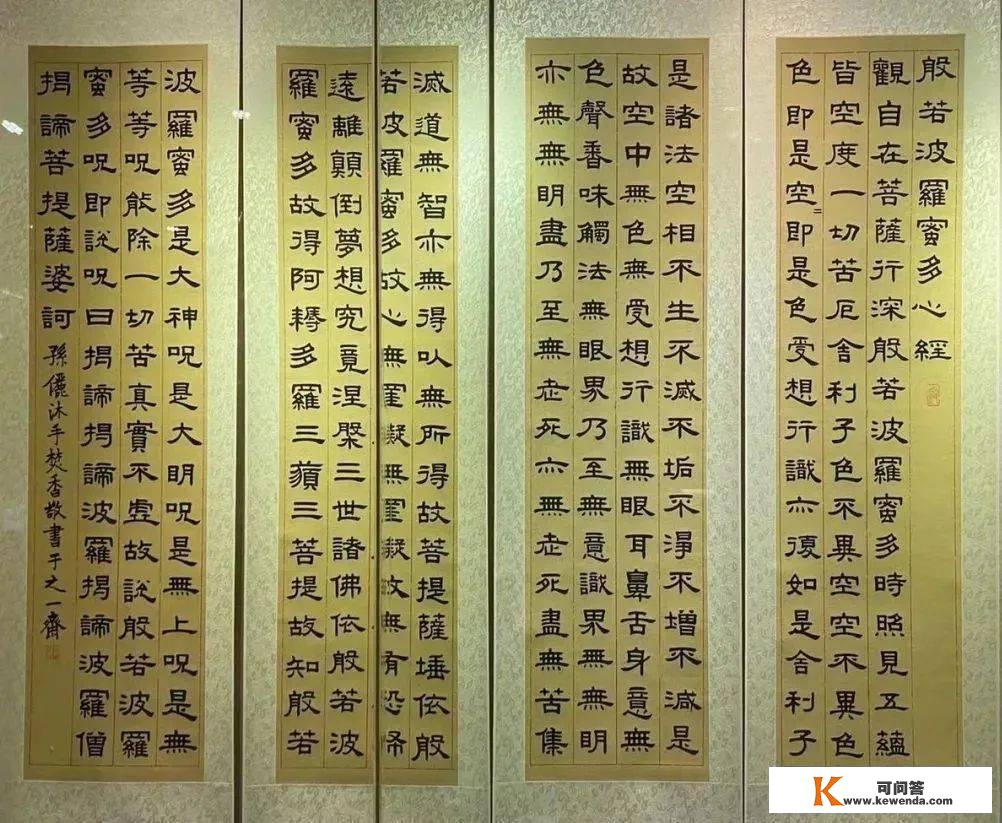 般若波羅蜜多心經
觀自在菩薩行深般若波羅蜜多時照見五蘊
皆空度一切苦厄舍利子色不異空空不異色
色即是空〻即是色受想行識亦復如是舍利子
是諸法空相不生不滅不垢不淨不增不減是
故空中無色無受想行識無眼耳鼻舌身意無
色聲香味觸法無眼界乃至無意識界無無明
亦無無明盡乃至無老死亦無老死盡無苦集
滅道無智亦無得以無所得故菩提薩埵依般
若波羅蜜多故心無罣礙無罣礙故無有恐怖
遠離顛倒夢想究竟涅槃三世諸佛依般若波
羅蜜多故得阿耨多羅三藐三菩提故知般若
波羅蜜多是大神呪是大明呪是無上呪是無
等等呪能除一切苦真實不虛故說般若波羅
蜜多呪即說呪曰揭諦揭諦波羅揭諦波羅僧
揭諦菩提薩婆訶 孫儷沐手焚香敬書于之一齋
K 可问答
www.kewenda.com